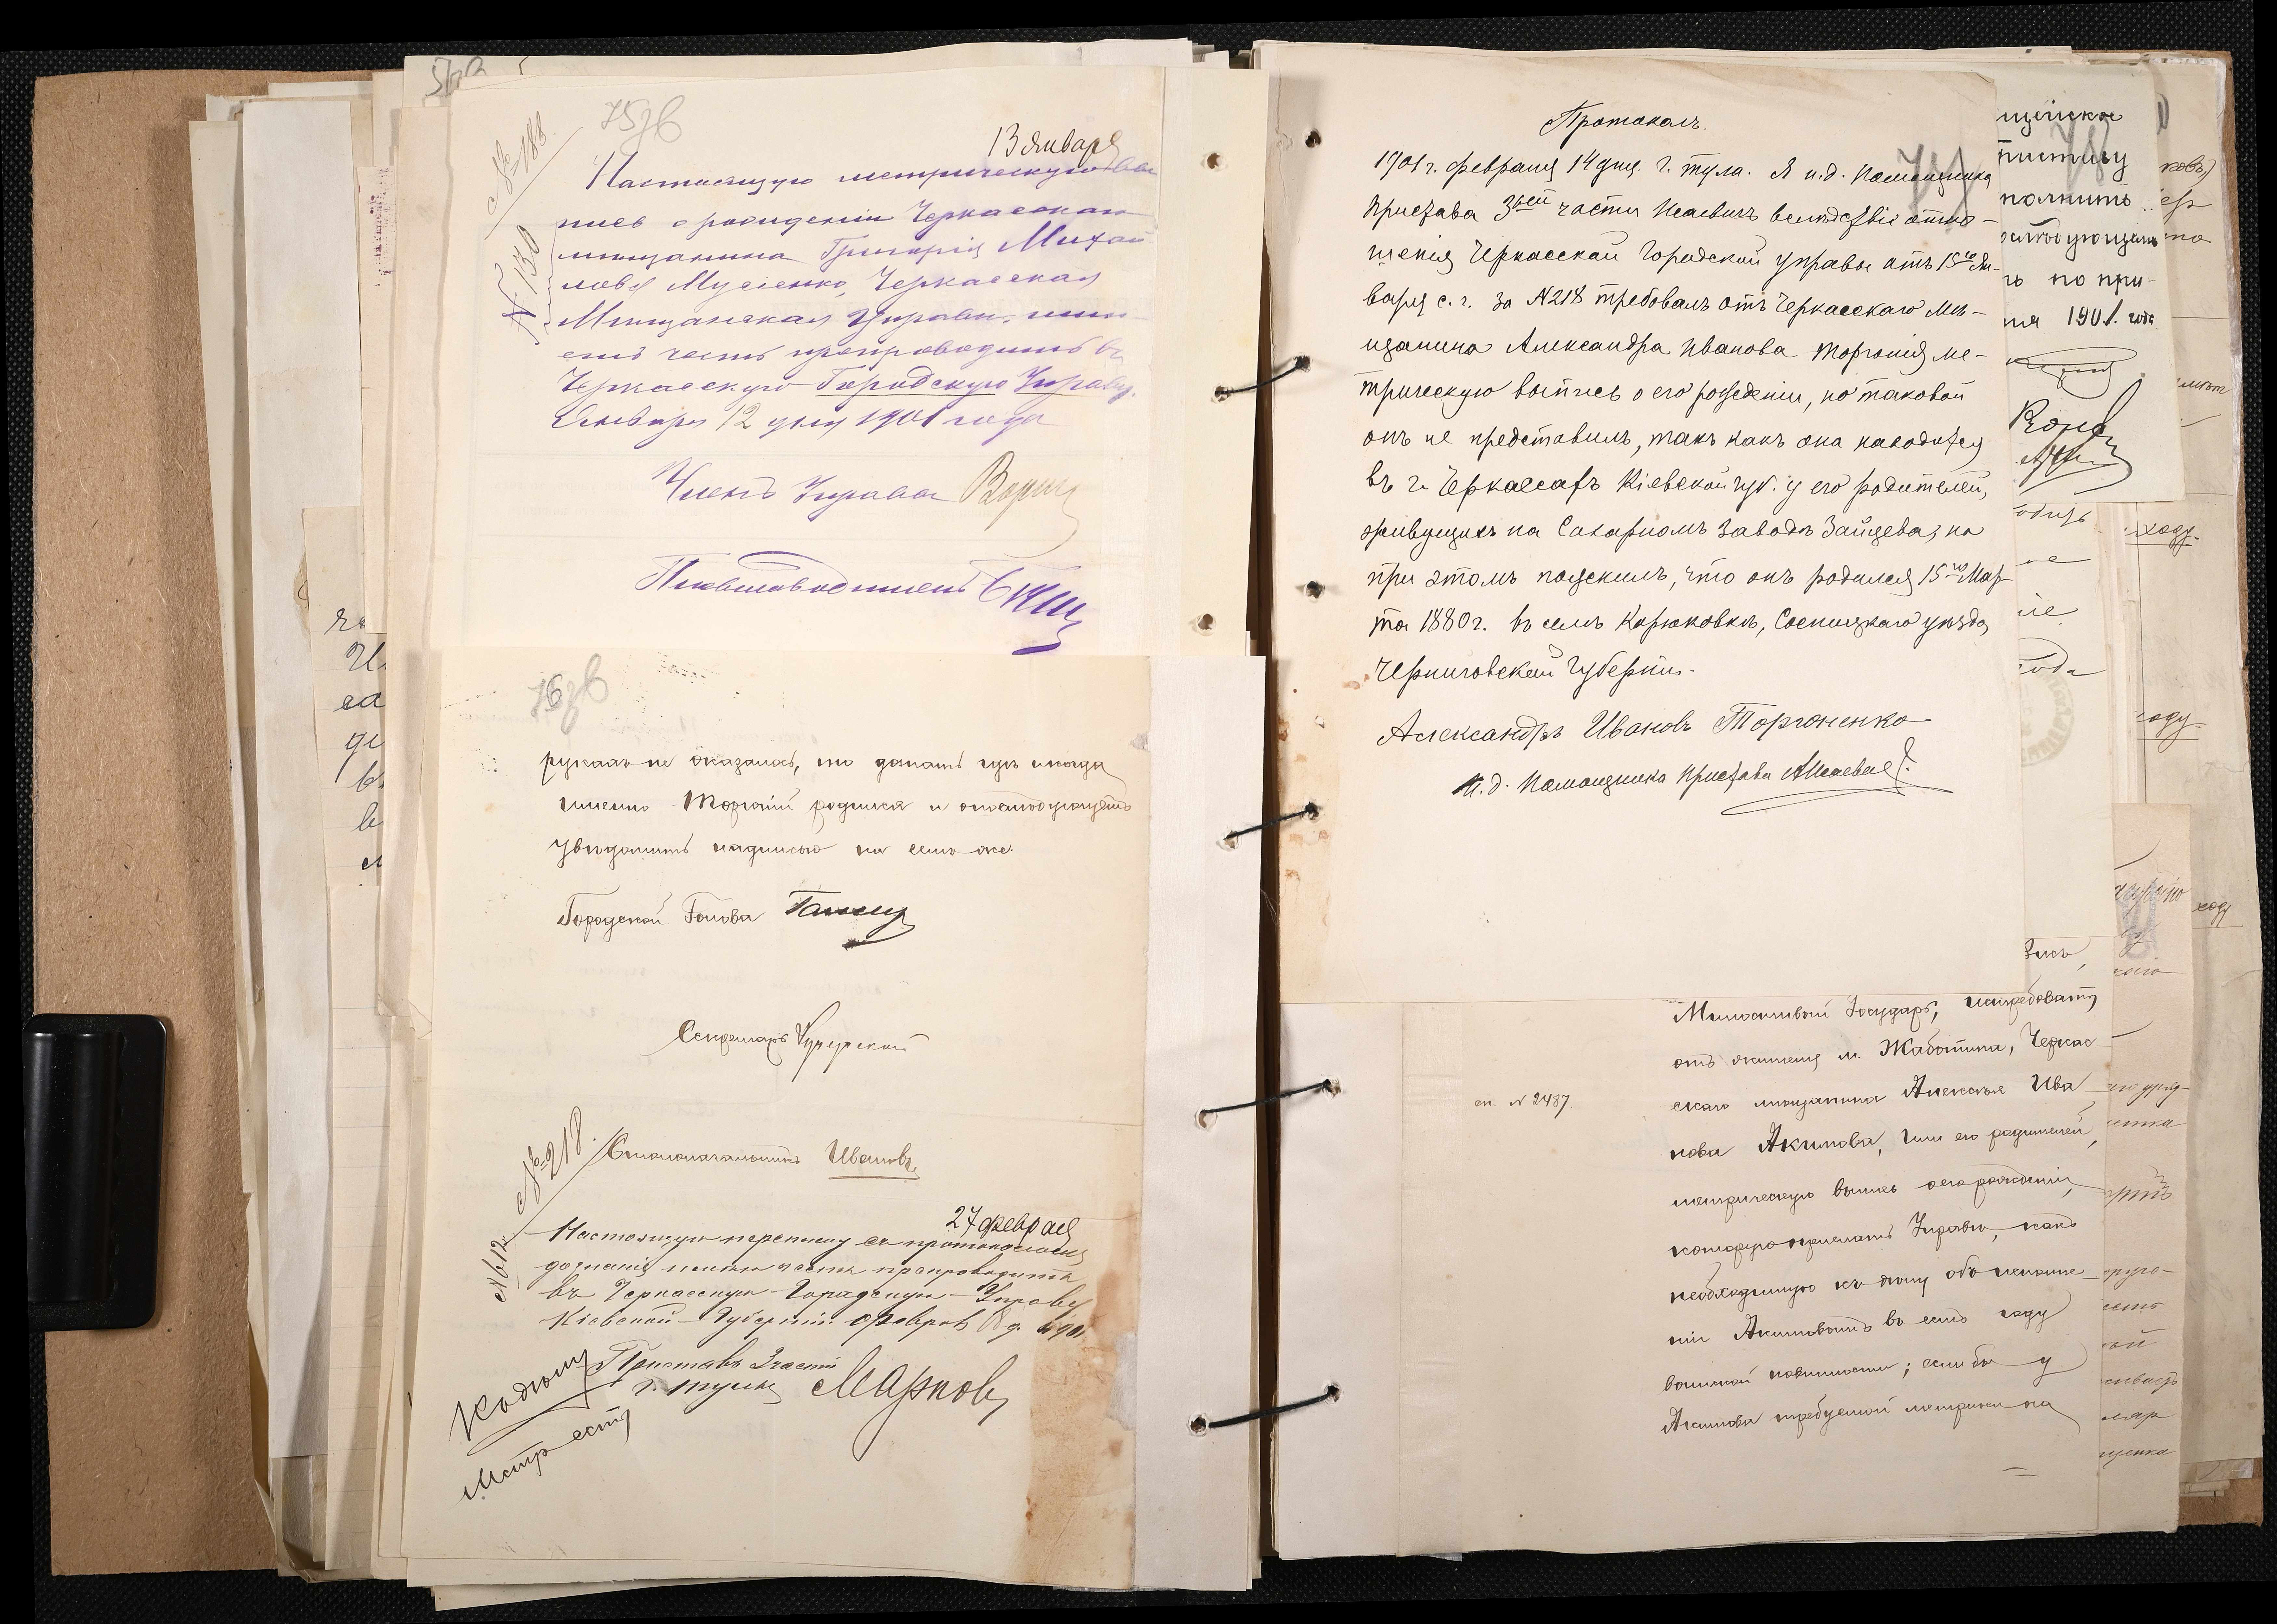 75об
№ 188.
№ 130
13 января
Настоящую метрическую вы
пись о рождении Черкасскаго
мещанина Григорія Михай
лова Мусіенко, Черкасская
Мещанская Управа, при
семъ честь препроводить въ
Черкасскую Городскую Управу.
Января 12 дня 1901 года
Членъ Управы
Письмоводитель
76об
рукахъ не оказалось, то дознать где и когда
именно Торгоній родился и о послѣдующемъ
увѣдомить надписью на семъ же.
Городской Голова
Секретарь
Столоначальникъ Ивановъ
№ 218.
№ 612
27 февраля
Настоящую переписку съ протоколомъ
дознанія имѣю честь препроводить
въ Черкасскую Городскую Управу
Кіевской Губерніи. Февраля 18 д. 1901
Приставъ 3 части
г. Тулы Марковъ
Къ дѣлу
Метр есть
Протоколъ.
77
1901 г. февраля 14 дня. г. Тула. Я и.д. Помощника
Пристава 3ьей части Исаевичъ вслѣдствіе отно-
шенія Черкасской Городской Управы отъ 15го Ян-
варя с. г. за N 218 требовалъ отъ Черкасскаго Мѣ-
щанина Александра Иванова Торгонія ме-
трическую выпись о его рожденіи, но таковой
онъ не представилъ, такъ какъ она находится
въ г. Черкассахъ Кіевской губ. у его родителей,
живущихъ на Сахарномъ Заводѣ Зайцева, но
при этомъ пояснилъ, что онъ родился 15го Мар-
та 1880 г. въ селѣ Корюковкѣ, Сосницкаго уѣзда,
Черниговской Губерніи.
Александръ Ивановъ Торгоненко
и. д. Помощника Пристава
78
щанское
полнить
послѣдующемъ
ъ по при-
ня 1901. года
ходу
ходу
Милостивый Государь, истребовать
отъ жителя м. Жаботина, Черкас
скаго мещанина Алексѣя Ива
нова Акимова, или его родителей,
метрическую выпись о его рожденіи,
которую прислать Управѣ, какъ
необходимую къ дѣлу объ исполне
ніи Акимовымъ въ семъ году
воинской повинности; если бы у
Акимова требуемой метрики на
сп. N 2487.